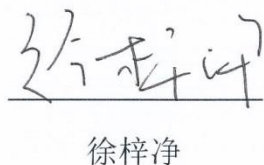 徐梓净
徐梓净